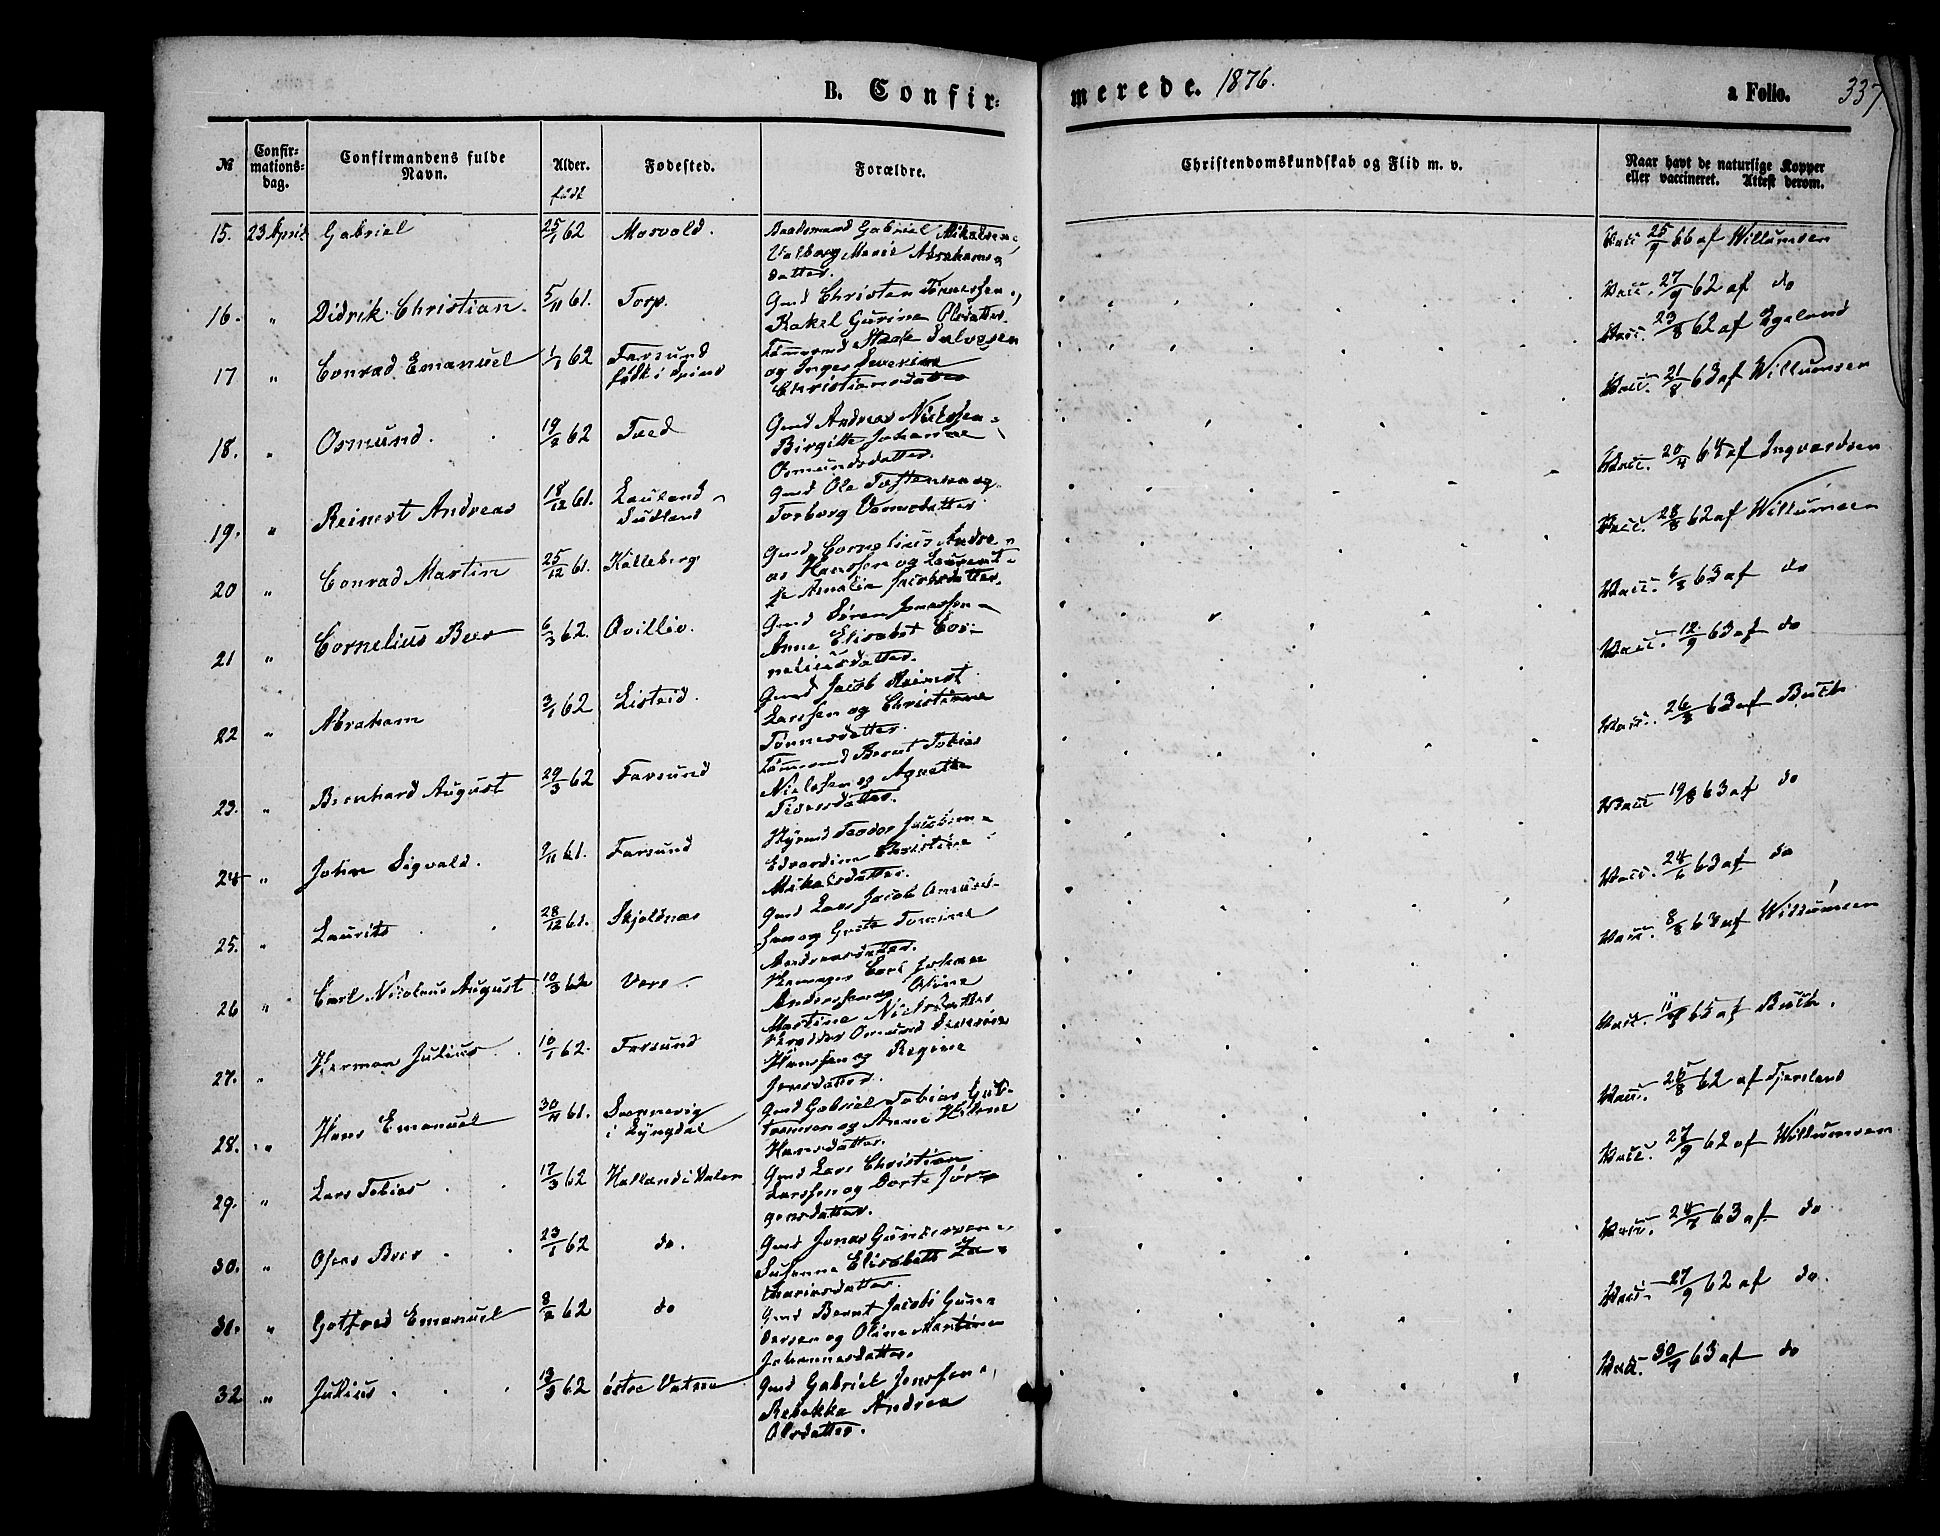 B. Confir=
merede. 1876.
a Folio. 337
№
Confir=
mations=
dag.
Confirmandens fulde
Navn.
Alder.
født
Fødested.
Forældre.
Christendomskundskab og Flid m. v.
Naar havt de naturlige Kopper
eller vaccineret. Attest derom.
15. 23 April Gabriel 25/1 62 Gabriel Mikalsen,
Valborg Marie Abrahams-
datter.
Vacc 25/7 66 af Willumsen
16. " Didrik Christian. 5/11 61. Torp. Gmd Christen Tønnessen,
Rakel Gurine Olsdatter.
Vacc. 27/9 62 af do
17 " Conrad Emanuel 62 Farsund
født i Spind
Salvesen
og Inger Severine
Christiansdatter
Vacc. 23/8 62 af Egeland
18. " Osmund. 19/2 62 Tved Gmd Andreas Nielssen
Birgitte Johanne
Osmundsdatter.
Vacc. 21/8 63 af Willumsen
19. " Reinert Andreas 18/12 61. Lauland
Sudland
Gmd Ole Tostensen og
Torborg
Vacc. 20/4 64 af Ingvardsen
20 " Conrad Martin 25/12 61. Kalleberg Gmd Cornelius Andre-
as Hanssen og Laurent-
ze Amalie Jacobsdatter.
Vacc. 28/8 62 af Willumsen
21 " Cornelius Beer 6/3 62. Qvilliv. Gmd Søren Jonassen
Anne Elisabet Cor-
neliusdatter.
Vacc. 6/8 63 af do
22 " Abraham 3/1 62 Listeid. Gmd Jacob Reinert
Larssen og Christianne
Tønnesdatter.
Vacc. 12/9 63 af do
23. " Bernhard August 29/3 62 Farsund Bernt Tobias
Nielssen og Agnethe
Pedersdatter.
Vacc. 26/8 63 af Buch
24 " John Sigvald. 61. Farsund Teodor Jacobsen
Edvardine Christine
Mikalsdatter.
Vacc 19/8 63 af do
25. " Laurits 28/12 61. Skjoldnæs Gmd Lars Jacob
sen og Grete Tomine
Andreasdatter.
Vacc. 24/6 63 af do
26 " Carl Nicolaus August 10/3 62 Vere Carl Johan
Anderssen og Oline
Martine Nielsdatter
Vacc. 8/8 63 af Willumsen
27. " Herman Julius 10/1 62. Farsund Osmund
Hanssen og Regine
Jensdatter.
65 af Buch.
28. " Hans Emanuel 30/11 61. Svennevig
i Lyngdal
Gmd Gabriel Tobias Gut-
tormsen og Anne Helene
Hansdatter.
Vacc. 26/8 62 af Tjersland
29. " Lars Tobias 17/3 62 Gmd Lars Christian
Larssen og Dorte Jør-
gensdatter.
Vacc. 27/9 62 af Willumsen
30. " Beer 23/1 62 do. Gmd Jonas Gundersen
Susanne Elisabeth Za-
chariasdatter.
Vacc. 24/7 63 af do
31. " Gotfred Emanuel 8/2 62 do Gmd Bernt Jacob Gun-
dersen og Oline Martine
Johannesdatter.
Vacc. 27/9 62 af do.
32 " Julius 13/3 62 østre Vatne Gmd Gabriel Jenssen,
Rebekka Andrea
Olsdatter.
Vacc. 30/9 63 af do